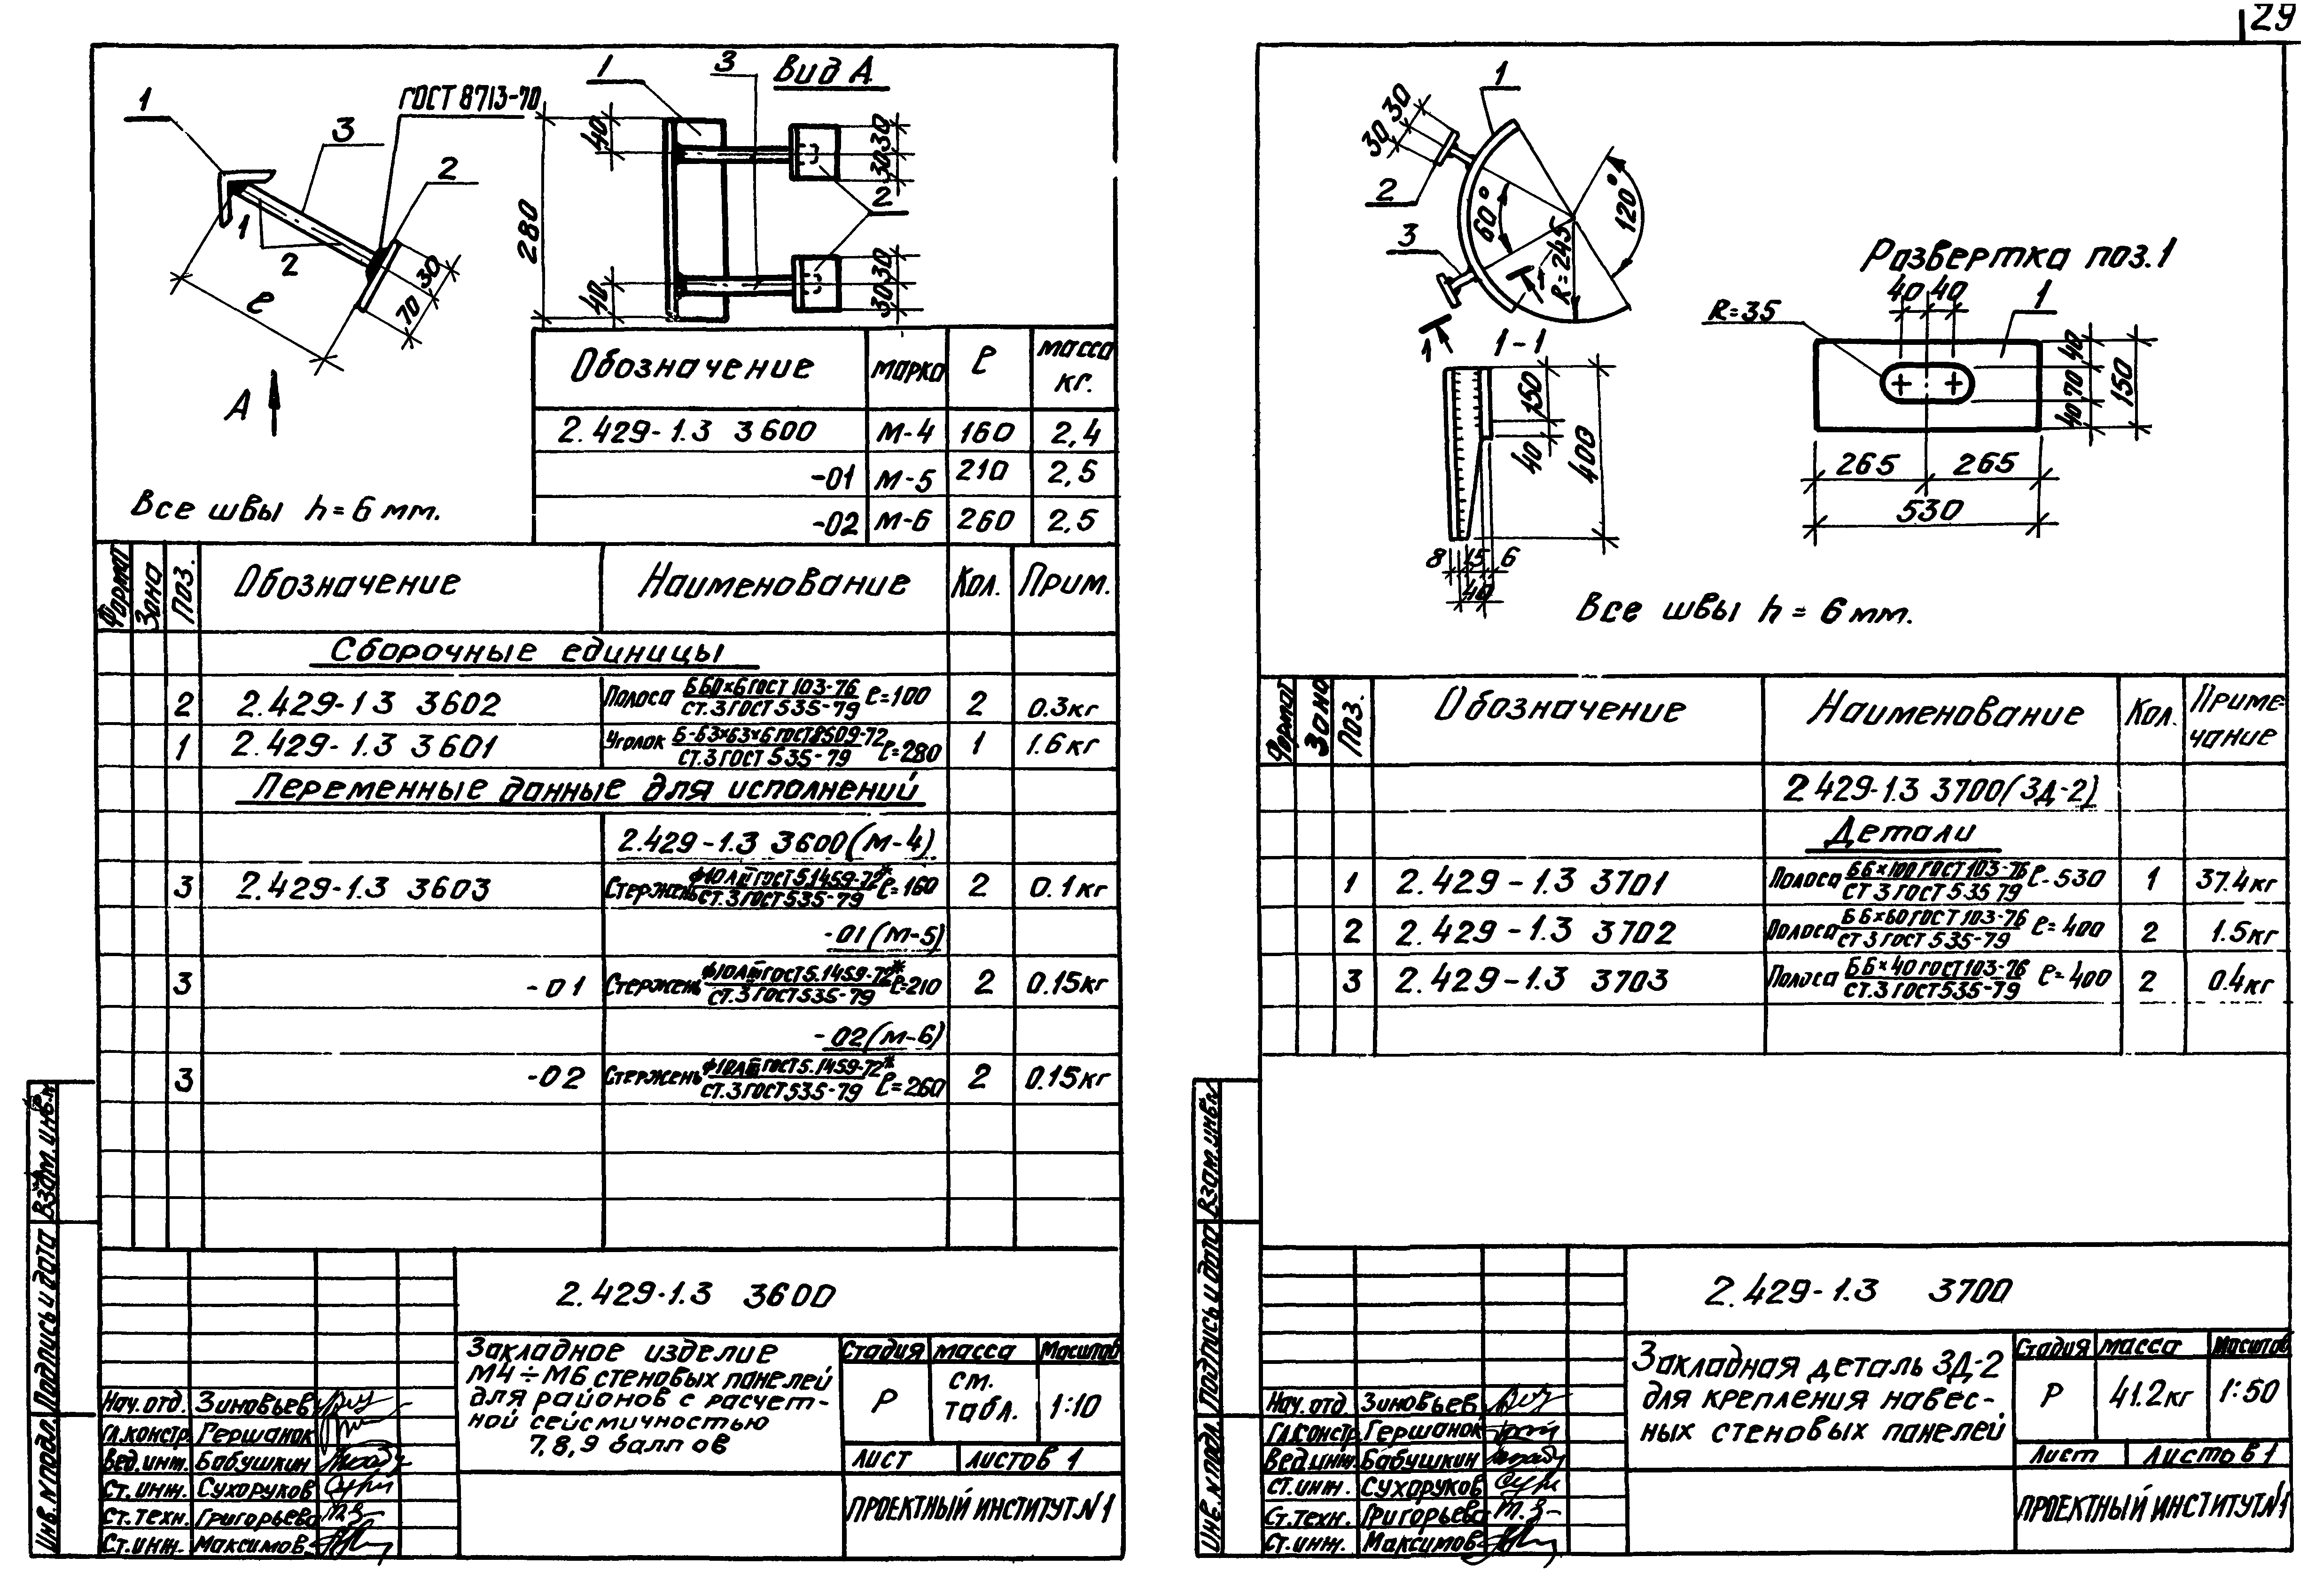 29
1
ГОСТ 8713-70
3
2
1
2
ℓ
30
70
А
Вид А
1
3
40
280
40
30 30
2
30 30
Обозначение марка ℓ масса кг.
2.429-1.3 3600 М-4 160 2,4
-01 М-5 210 2,5
-02 М-6 260 2,5
Все швы h=6мм.
Формат Зона Поз. Обозначение Наименование Кол. Прим.
Сборочные единицы
2 2.429-1 3 3602 Полоса Б 60×6 ГОСТ 103-76 / СТ.3 ГОСТ 535-79 ℓ=100 2 0.3кг
1 2.429-1.3 3601 Уголок Б-63×63×6 ГОСТ 8509-72 / СТ.3 ГОСТ 535-79 ℓ=280 1 1.6кг
Переменные данные для исполнений
2.429-1.3 3600(М-4)
3 2.429-1.3 3603 Стержень ф10АIII ГОСТ 5.1459-72* / СТ.3 ГОСТ 535-79 ℓ=160 2 0.1кг
-01(М-5)
3 -01 Стержень ф10АIII ГОСТ 5.1459-72* / СТ.3 ГОСТ 535-79 ℓ=210 2 0.15кг
-02(М-6)
3 -02 Стержень ф10АIII ГОСТ 5.1459-72* / СТ.3 ГОСТ 535-79 ℓ=260 2 0.15кг
Взам. инв.N
Подпись и дата
Инв. N подл.
2.429-1.3 3600
Закладное изделие
М4÷М6 стеновых панелей
для районов с расчет-
ной сейсмичностью
7,8,9 баллов
Стадия масса Масштаб
Р см. табл. 1:10
Лист Листов 1
ПРОЕКТНЫЙ ИНСТИТУТ N1
Нач. отд. Зиновьев
Гл. констр. Гершанок
Вед. инж. Бабушкин
Ст. инж. Сухоруков
Ст. техн. Григорьева
Ст. инж. Максимов
1
30 30
2
3
60°
120°
R=245
1
1
1-1
150
40
400
8 15 6
40
Развертка поз.1
40 40
1
R=35
40
70
40
150
265 265
530
Все швы h=6мм.
Формат Зона Поз. Обозначение Наименование Кол. Приме-
чание
2 429-1.3 3700(ЗД-2)
Детали
1 2.429-1.3 3701 Полоса Б6×100 ГОСТ 103-76 / СТ 3 ГОСТ 535 79 ℓ-530 1 37.4кг
2 2.429-1.3 3702 Полоса Б6×60 ГОСТ 103-76 / СТ 3 ГОСТ 535-79 ℓ=400 2 1.5кг
3 2.429-1.3 3703 Полоса Б6×40 ГОСТ 103-76 / СТ.3 ГОСТ 535-79 ℓ=400 2 0.4кг
Взам. инв.N
Подпись и дата
Инв. N подл.
2.429-1.3 3700
Закладная деталь ЗД-2
для крепления навес-
ных стеновых панелей
Стадия масса Масштаб
Р 41.2кг 1:50
Лист Листов 1
ПРОЕКТНЫЙ ИНСТИТУТ N1
Нач. отд Зиновьев
Гл. констр Гершанок
Вед. инж. Бабушкин
Ст. инж. Сухоруков
Ст. техн. Григорьева
Ст. инж. Максимов